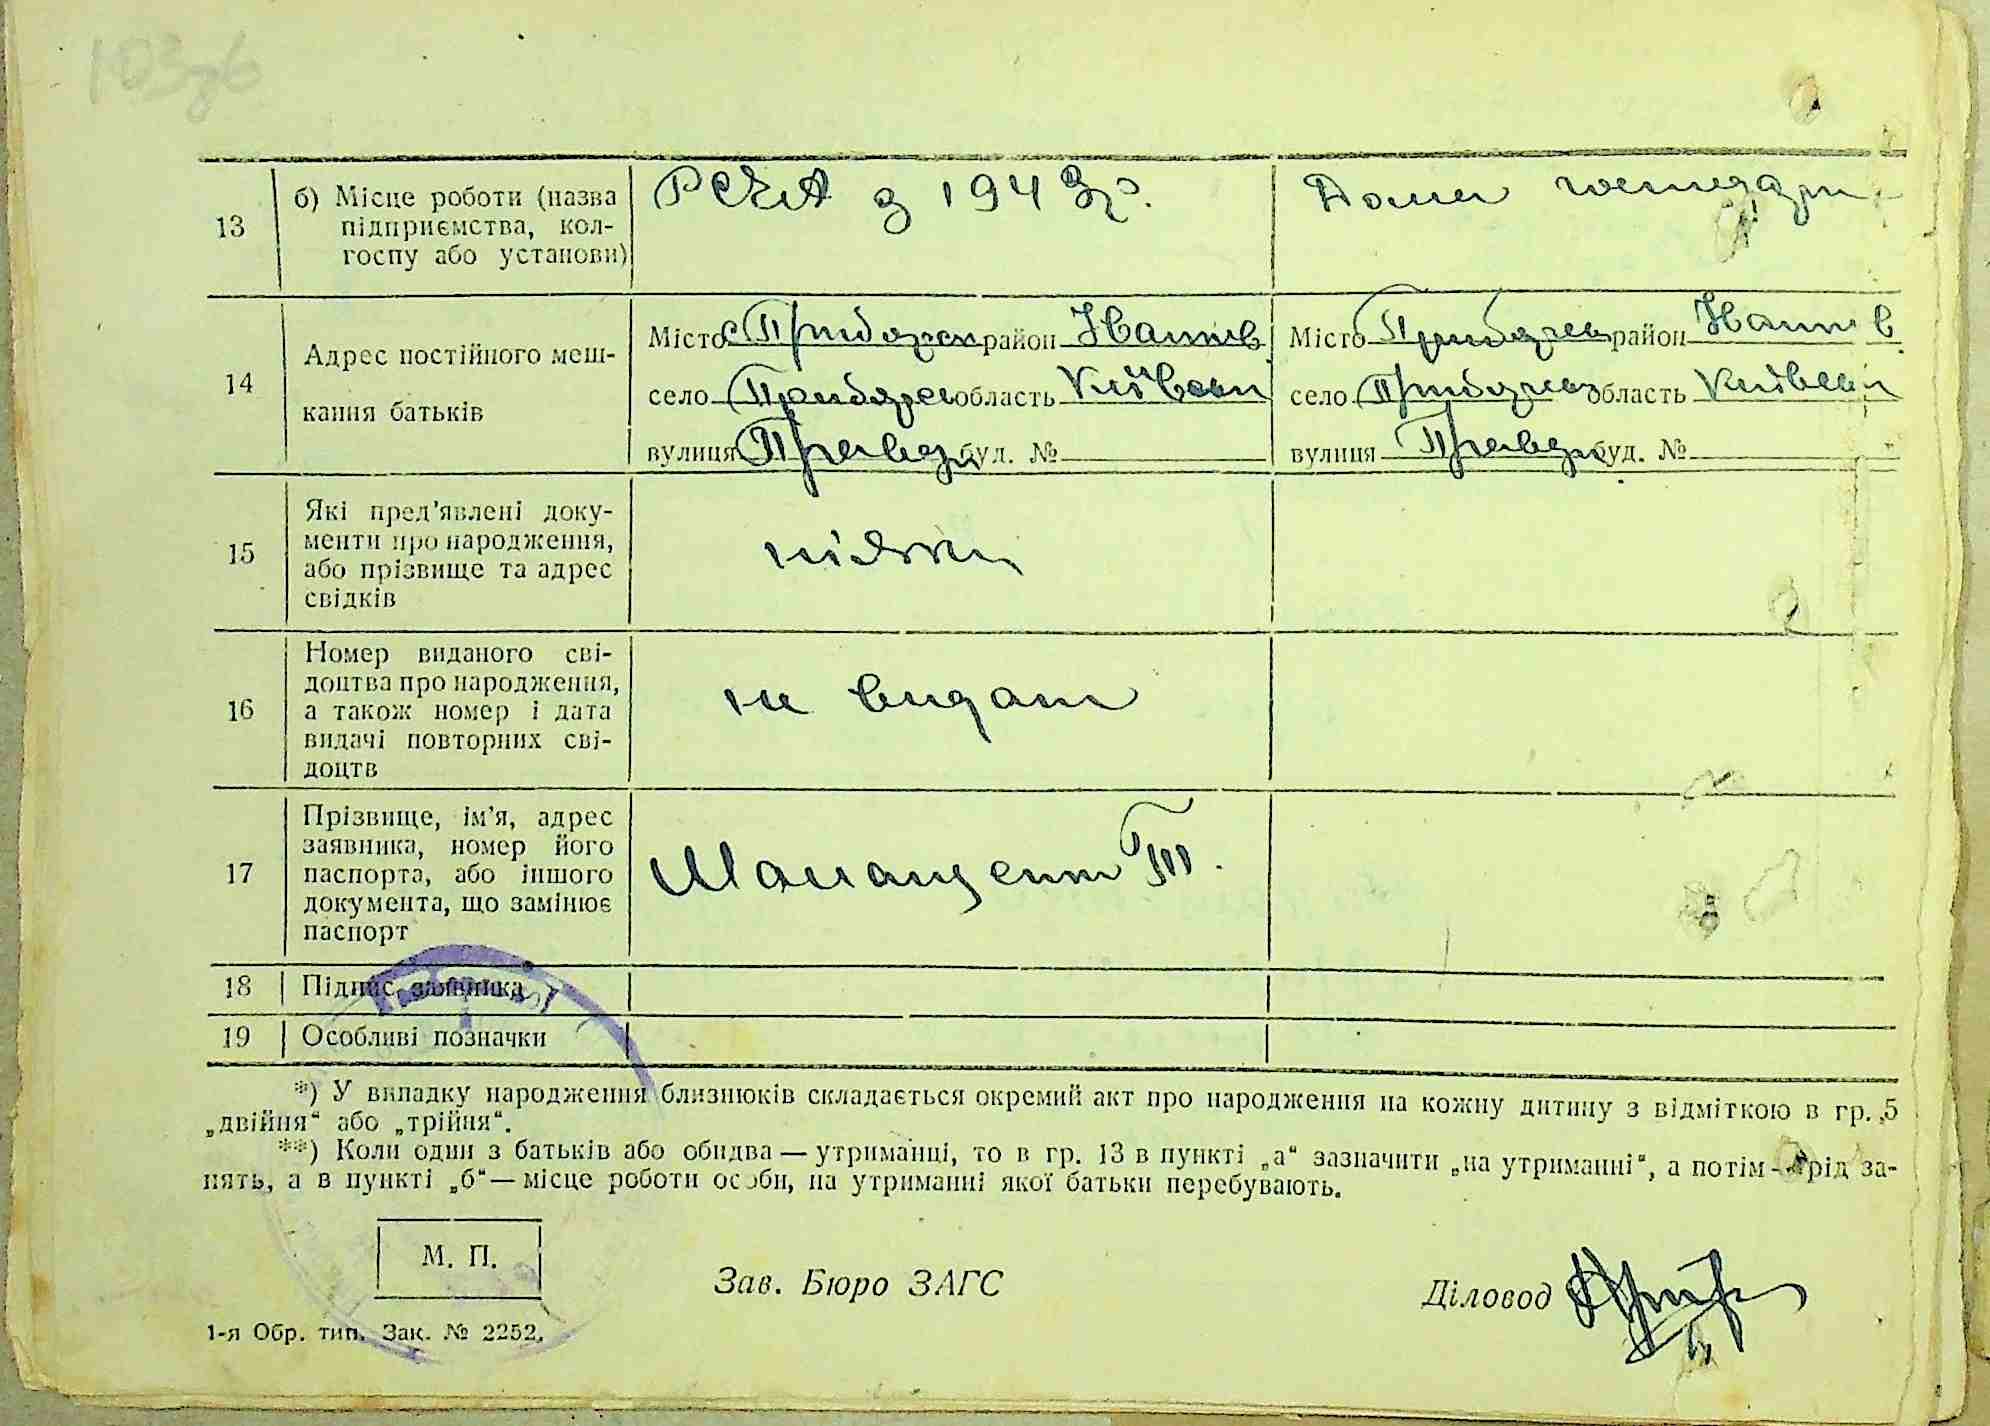 103зв
13 б) Місце роботи (назва підприємства, кол-
госпу або установи)
РСЧА з 1943р. Дома господар
14 Адрес постійного меш-
кання батьків
Місто район Іванків
село область Київськ
вулиця Правди буд. №
Місто район Іванків
село область Київськ
вулиця Правди буд. №
15 Які пред'явлені доку-
менти про народження,
або прізвище та адрес
свідків
ніяких
16 Номер виданого сві-
доцтва про народження,
а також номер і дата
видачі повторних сві-
доцтв
не видан
17 Прізвище, ім'я, адрес
заявника, номер його
паспорта, або іншого
документа, що замінює
паспорт
18 Підпис заявника
19 Особливі позначки
*) У випадку народження близнюків складається окремий акт про народження на кожну дитину з відміткою в гр. 5
„двійня“ або „трійня“.
**) Коли один з батьків або обидва — утриманці, то в гр. 13 в пункті „а“ зазначити „на утриманні“, а потім — рід за-
нять, а в пункті „б“ — місце роботи особи, на утриманні якої батьки перебувають.
М. П.
Зав. Бюро ЗАГС
Діловод
1-я Обр. тип. Зак. № 2252.